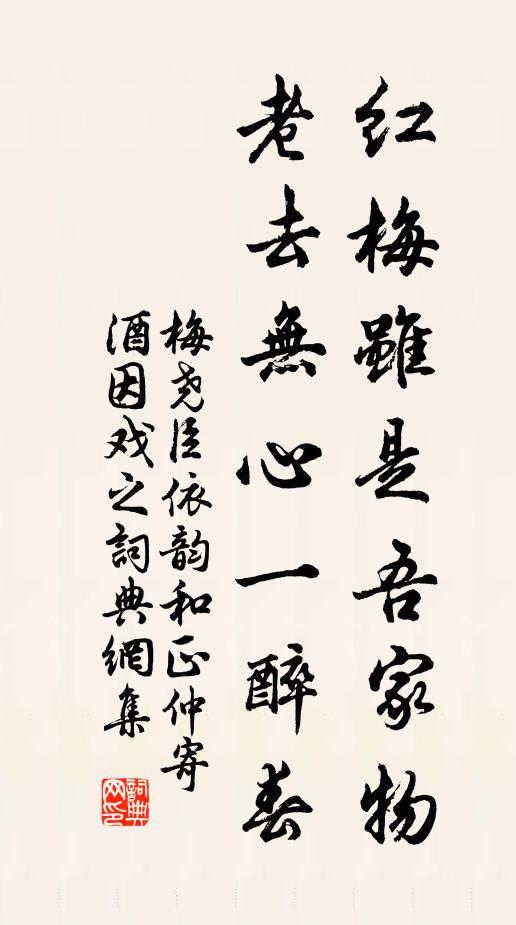 红梅雖是吾家物
老去無心一醉春
梅尧臣依韵和正仲寄
酒因戏之詞典網集
詞典网印